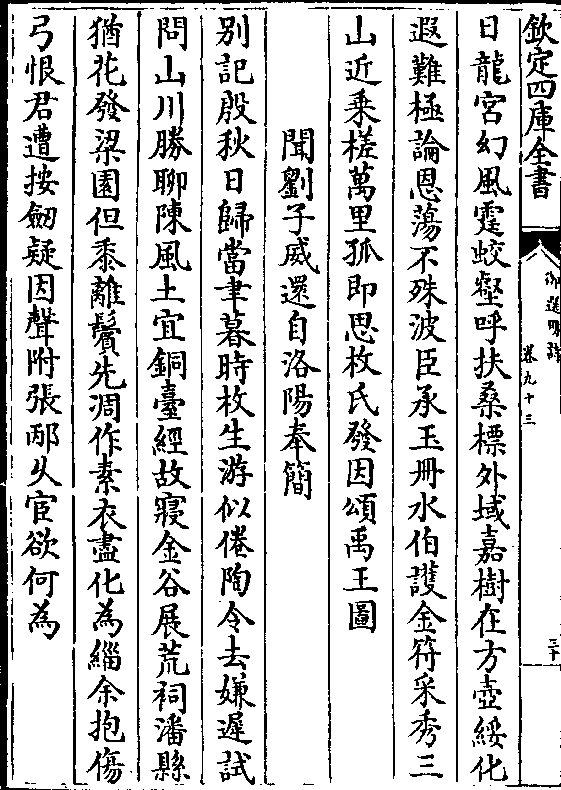 欽定四庫全書
御選明詩
卷九十三
三十
日龍宮幻風霆蛟壑呼扶桑標外域嘉樹在方壺綏化
遐難極論恩蕩不殊波臣承玉冊水伯護金符采秀三
山近乘槎萬里孤即思枚氏發因頌禹王圖
聞劉子威還自洛陽奉簡
别記殷秋日歸當聿暮時枚生游似倦陶令去嫌遲試
問山川勝聊陳風土宜銅臺經故寢金谷展荒祠潘縣
猶花發梁園但黍離鬢先凋作素衣盡化為緇余抱傷
弓恨君遭按劒疑因聲附張邴乆宦欲何為